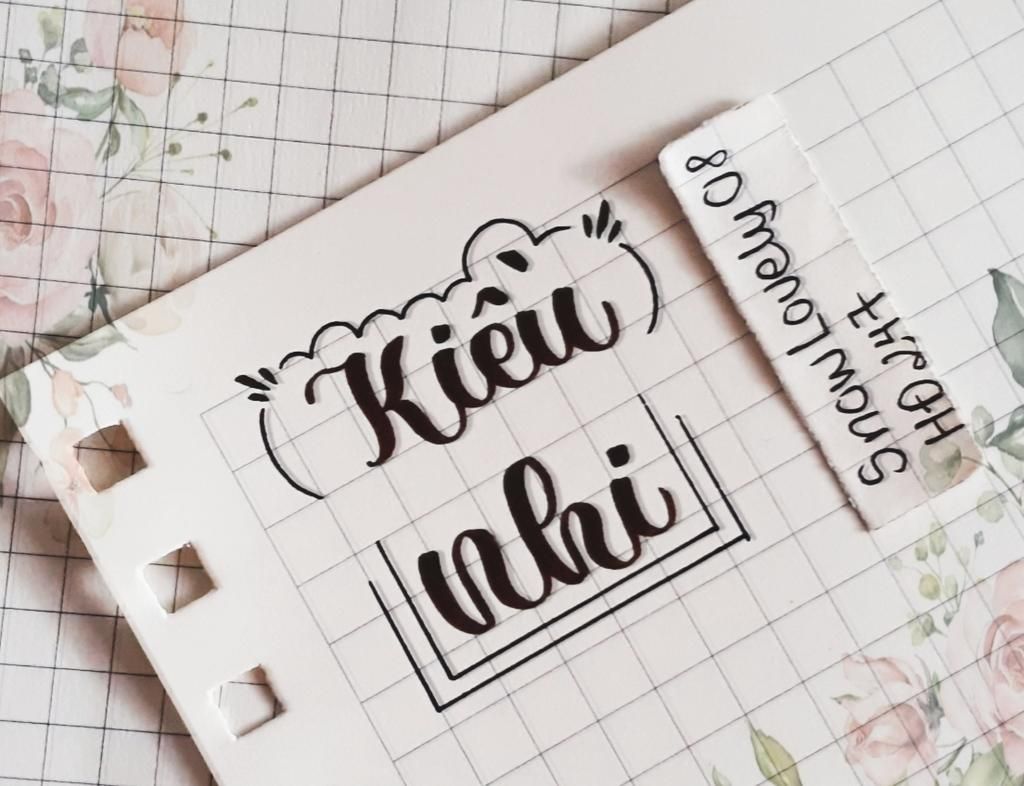 Kiều
nhi
SnowLovely08
HĐ 247